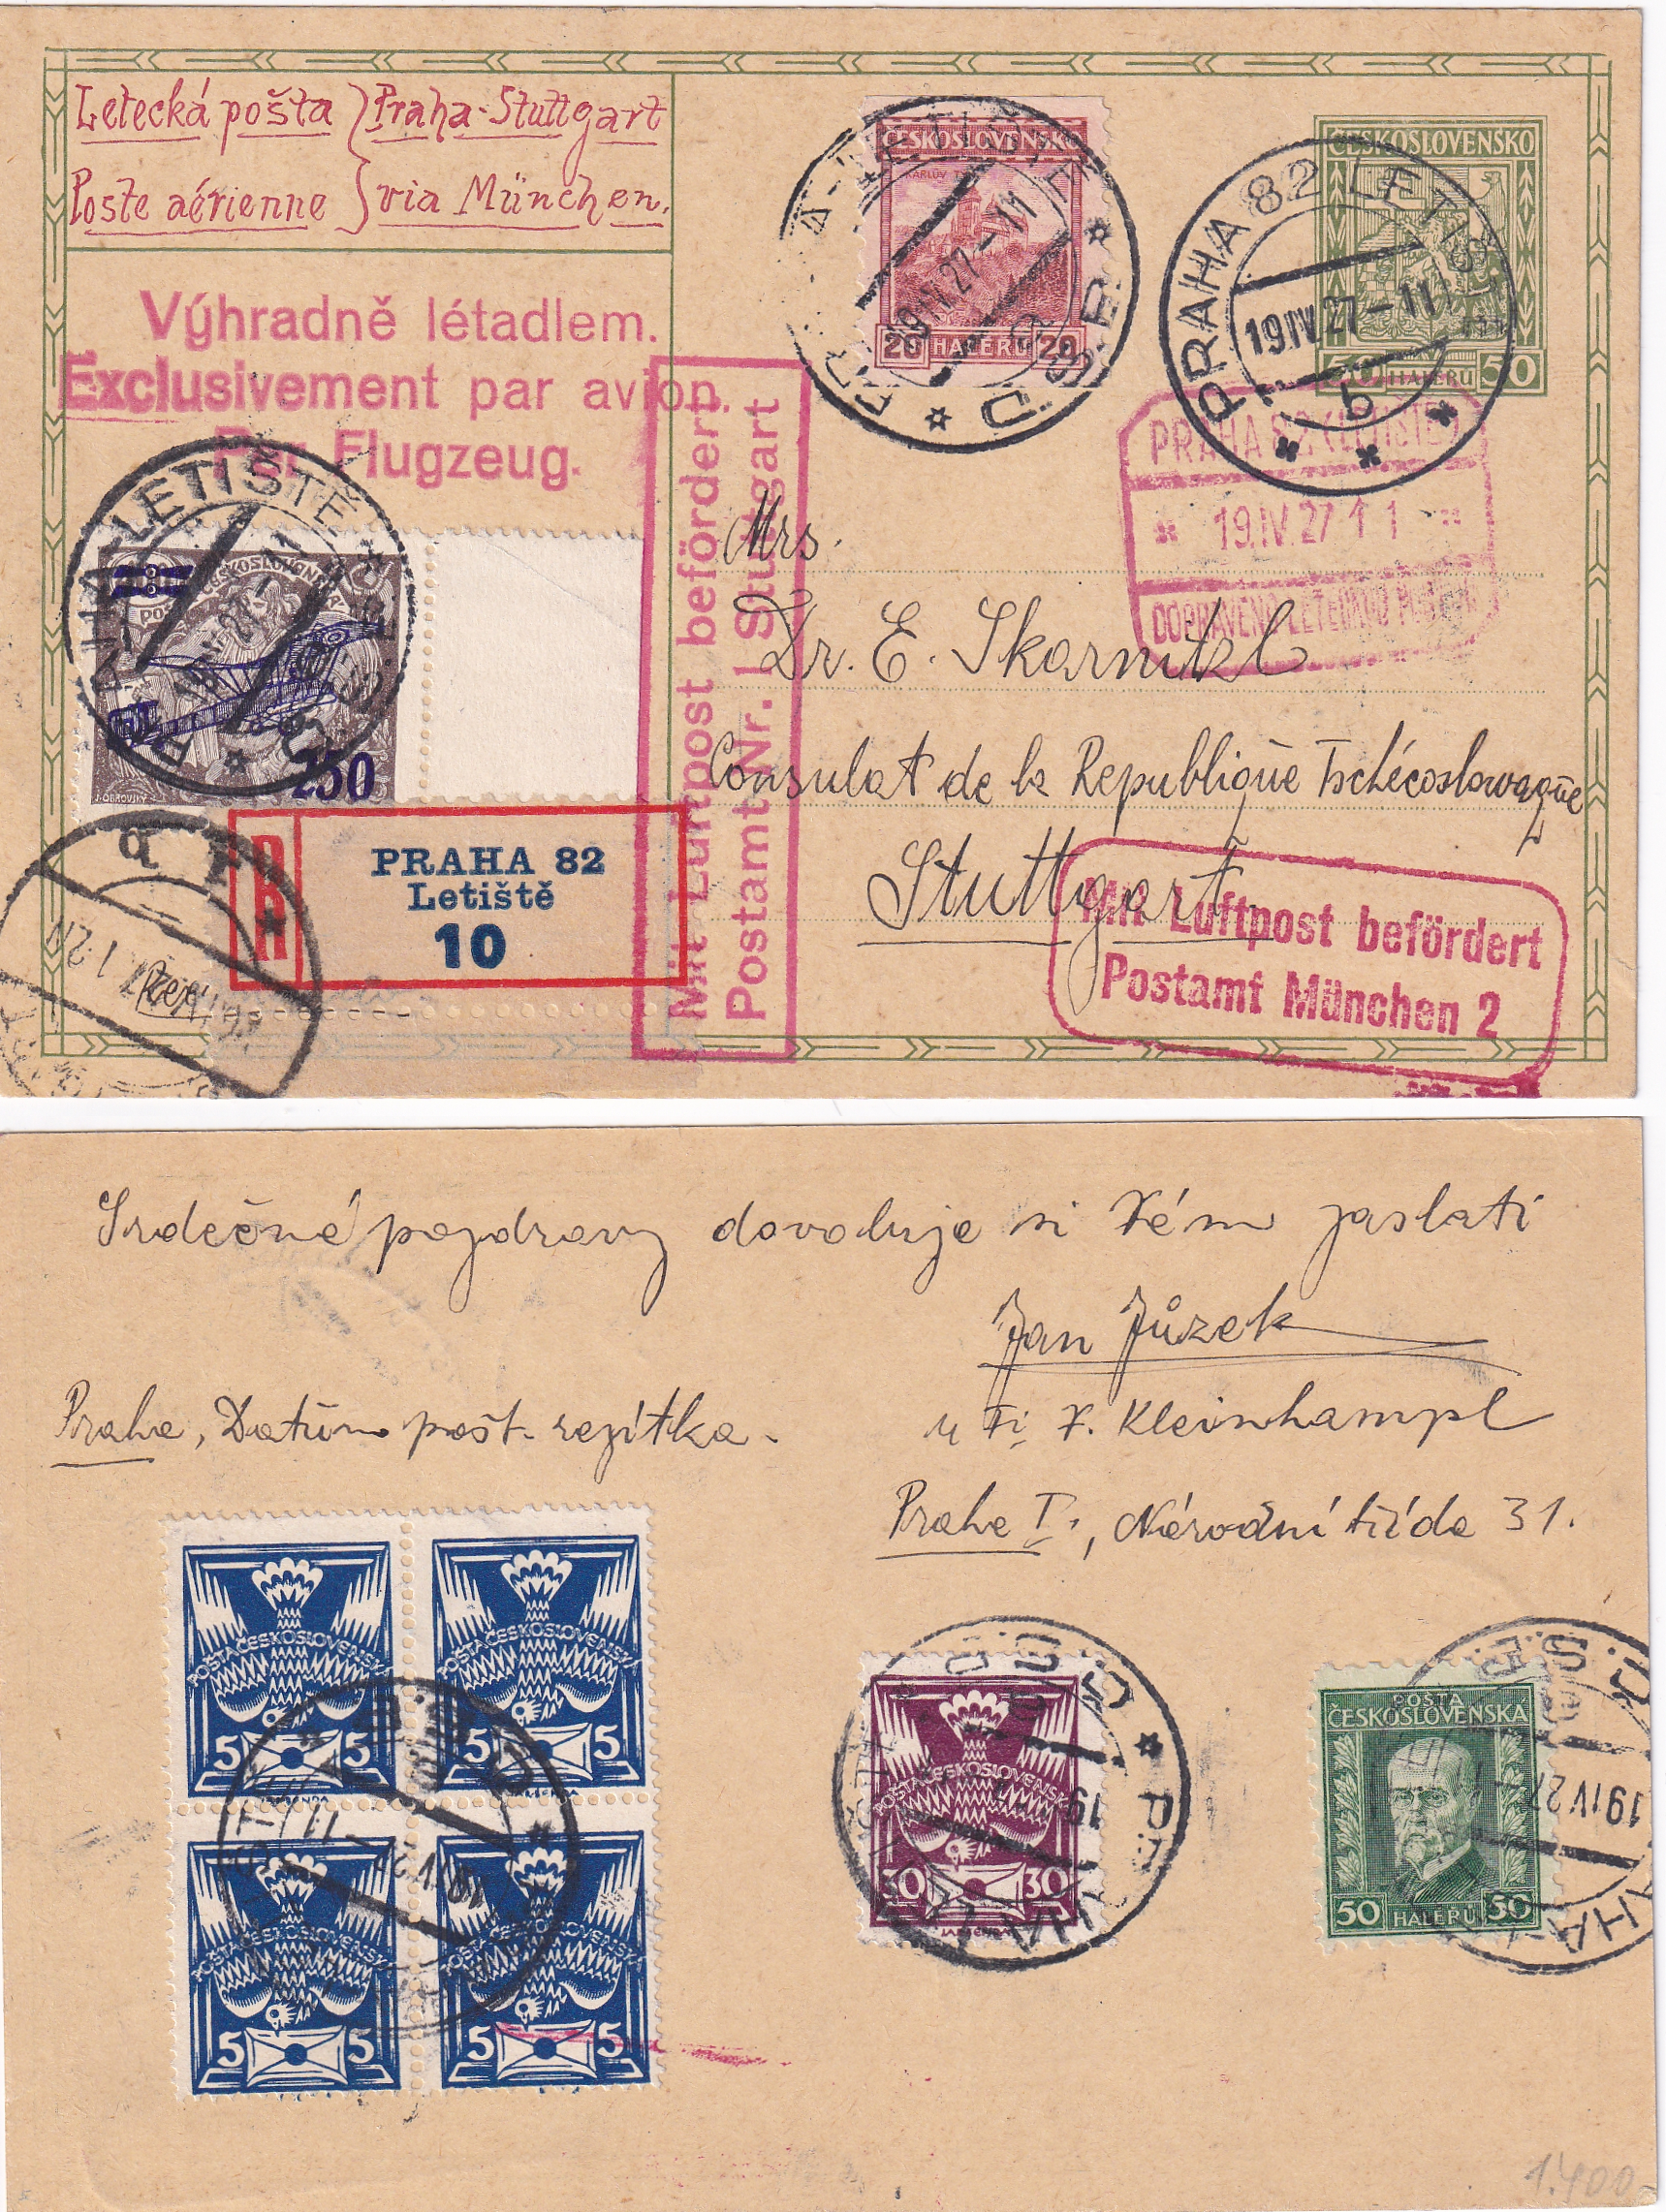 Letecká pošta } Praha-Stuttgart
Poste aérienne } via München.
Výhradně létadlem.
Exclusivement par avion.
Par Flugzeug.
ČESKOSLOVENSKO
KARLŮV TÝN
20 HALÉŘŮ 20
PRAHA-LETIŠTĚ
19.IV.27-11
Č.S.R.
ČESKOSLOVENSKO
50 HALÉŘŮ 50
PRAHA 82 LETIŠTĚ
19.IV.27-11
b
PRAHA 82 (LETIŠTĚ)
19.IV.27 11
DOPRAVENO LETECKOU POŠTOU
Mit Luftpost befördert
Postamt Nr. 1 Stuttgart
PRAHA-LETIŠTĚ
Č.S.R.
POŠTA ČESKOSLOVENSKÁ
J. OBROVSKÝ
250
R
PRAHA 82
Letiště
10
Mrs.
Dr. E. Skarnitzl
Consulat de la Republique Tschécoslovaque
Stuttgart
Mit Luftpost befördert
Postamt München 2
Srdečné pozdravy dovoluje si Vám zaslati
Jan Jůzek
u Fi. F. Kleinhampl
Praha, Datům pošt. razítka.
Praha I., Národní třída 31.
POŠTA ČESKOSLOVENSKÁ
5 5
POŠTA ČESKOSLOVENSKÁ
5 5
POŠTA ČESKOSLOVENSKÁ
5 5
POŠTA ČESKOSLOVENSKÁ
5 5
POŠTA ČESKOSLOVENSKÁ
30 30
Č.S.R.
POŠTA
ČESKOSLOVENSKÁ
50 HALÉŘŮ 50
19.IV.27
1.400